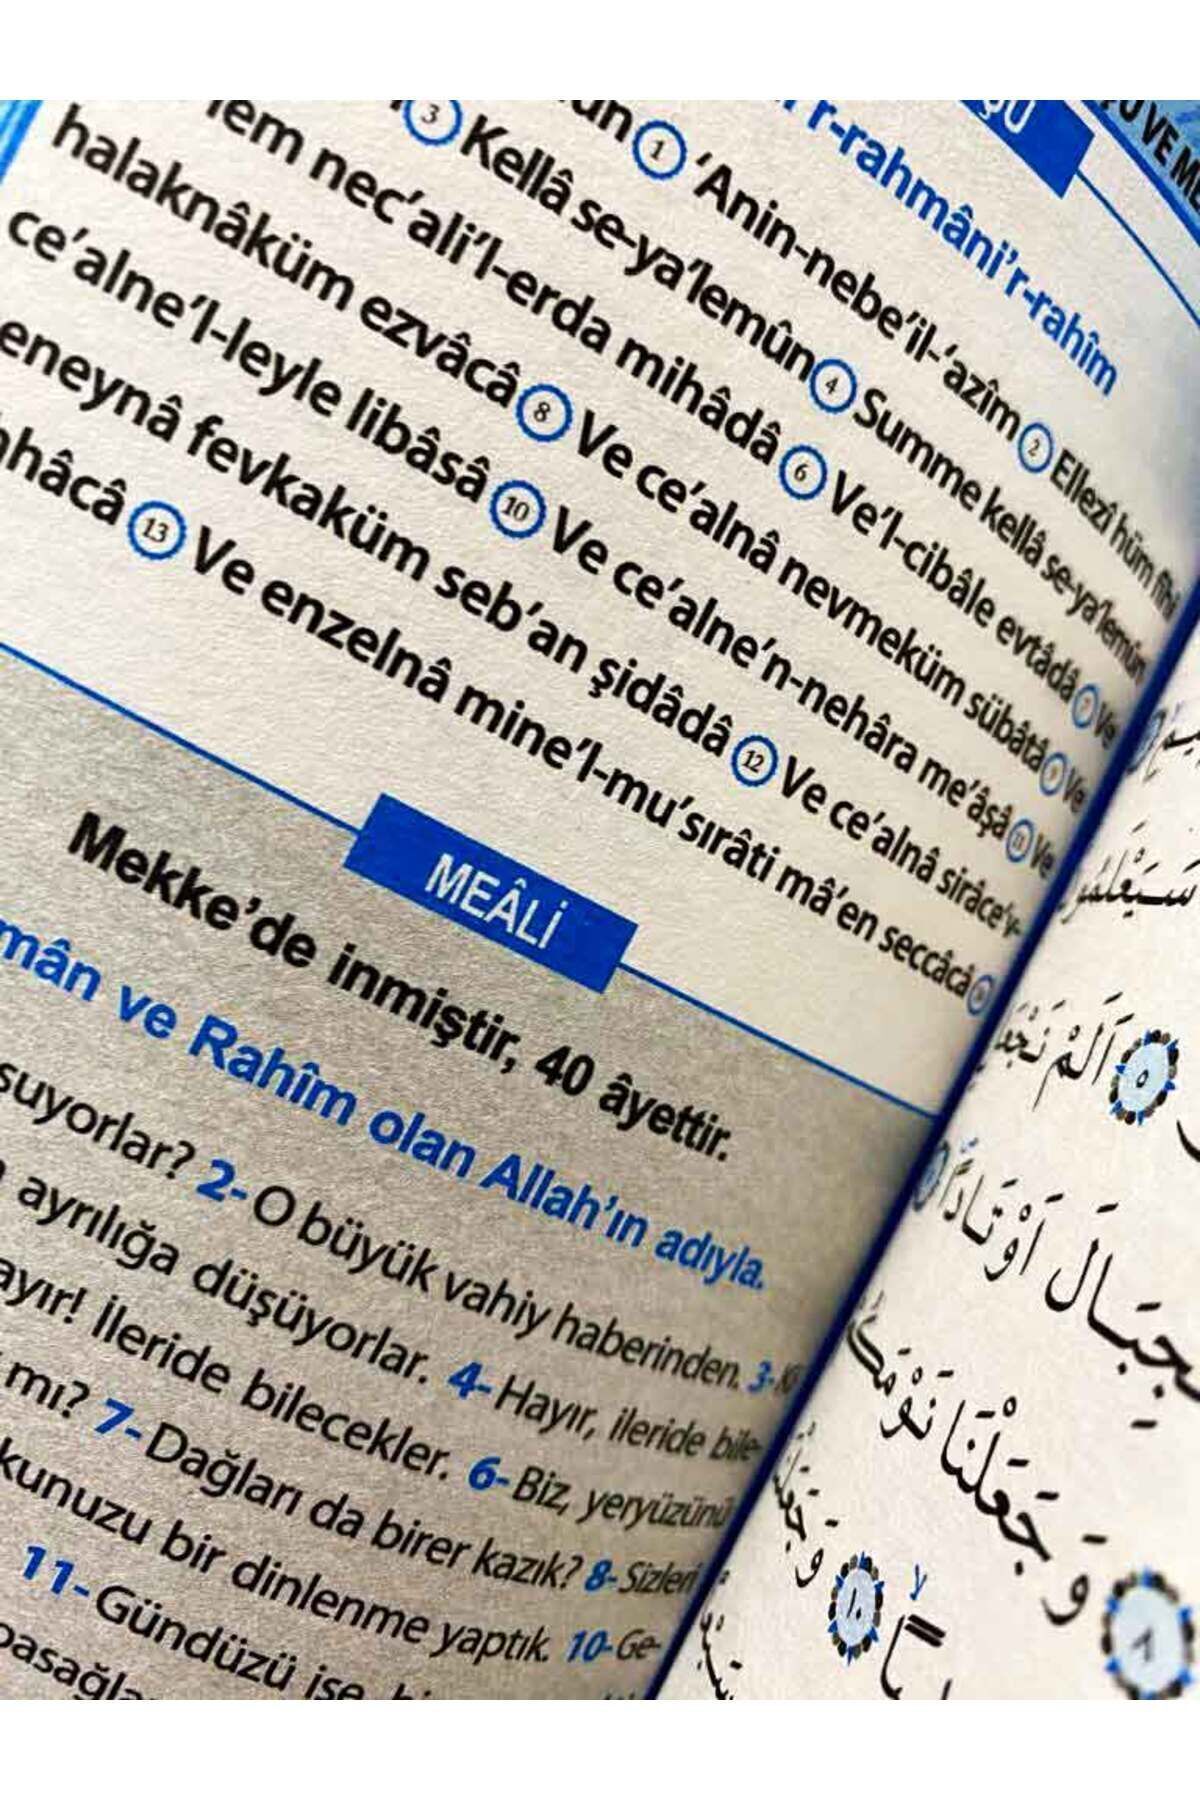 U VE ME
r-rahmâni'r-rahîm
ûn 1 'Anin-nebe'il-'azîm 2 Ellezî hüm fîhi
3 Kellâ se-ya'lemûn 4 Summe kellâ se-ya'lemûn
lem nec'ali'l-erda mihâdâ 6 Ve'l-cibâle evtâdâ 7 Ve
halaknâküm ezvâcâ 8 Ve ce'alnâ nevmeküm sübâtâ 9 Ve
ce'alne'l-leyle libâsâ 10 Ve ce'alne'n-nehâra me'âşâ 11 Ve
eneynâ fevkaküm seb'an şidâdâ 12 Ve ce'alnâ sirâce'v-
hhâcâ 13 Ve enzelnâ mine'l-mu'sırâti mâ'en seccâcâ
MEÂLİ
Mekke'de inmiştir, 40 âyettir.
mân ve Rahîm olan Allah'ın adıyla.
suyorlar? 2- O büyük vahiy haberinden. 3- Ki
ayrılığa düşüyorlar. 4- Hayır, ileride bile-
ayır! İleride bilecekler. 6- Biz, yeryüzünü
mı? 7- Dağları da birer kazık? 8- Sizleri
kunuzu bir dinlenme yaptık. 10- Ge-
11- Gündüzü ise
سَيَعْلَمُو
٥ اَلَمْ نَجْعَ
جِبَالَ اَوْتَادًا
٦ وَجَعَلْنَا نَوْمَكُ
١٠ وَجَعَلْنَا